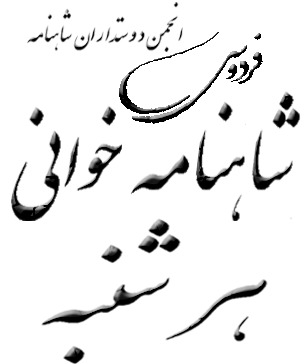 انجمن دوستداران شاهنامه
فردوسی
شاهنامه خوانی
هر شنبه